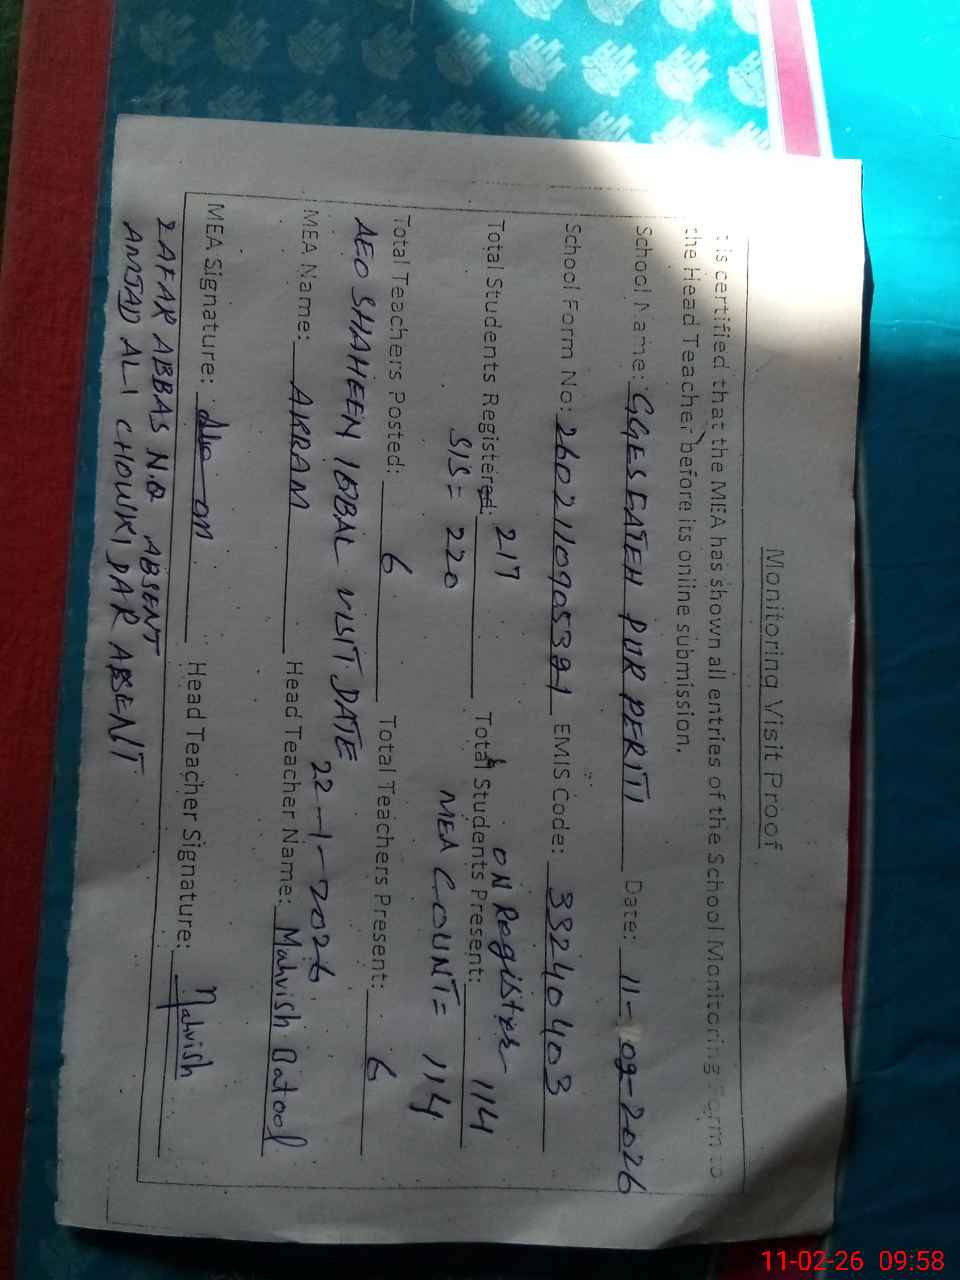 Monitoring Visit Proof
t is certified that the MEA has shown all entries of the School Monitoring Form to
the Head Teacher before its online submission.
School Name: GGES FATEH PUR PERITI Date: 11-09-2026
School Form No: 2602110905391 EMIS Code: 33240403
Total Students Registered: 217 Total Students Present: ON Register 114
SIS = 220 MEA COUNT = 114
Total Teachers Posted: 6 Total Teachers Present: 6
AEO SHAHEEN IQBAL VISIT DATE 22-1-2026
MEA Name: AKRAM Head Teacher Name: Mahvish Batool
MEA Signature: Head Teacher Signature: Mahvish
ZAFAR ABBAS N.Q ABSENT
AMJAD ALI CHOWKIDAR ABSENT
11-02-26 09:58